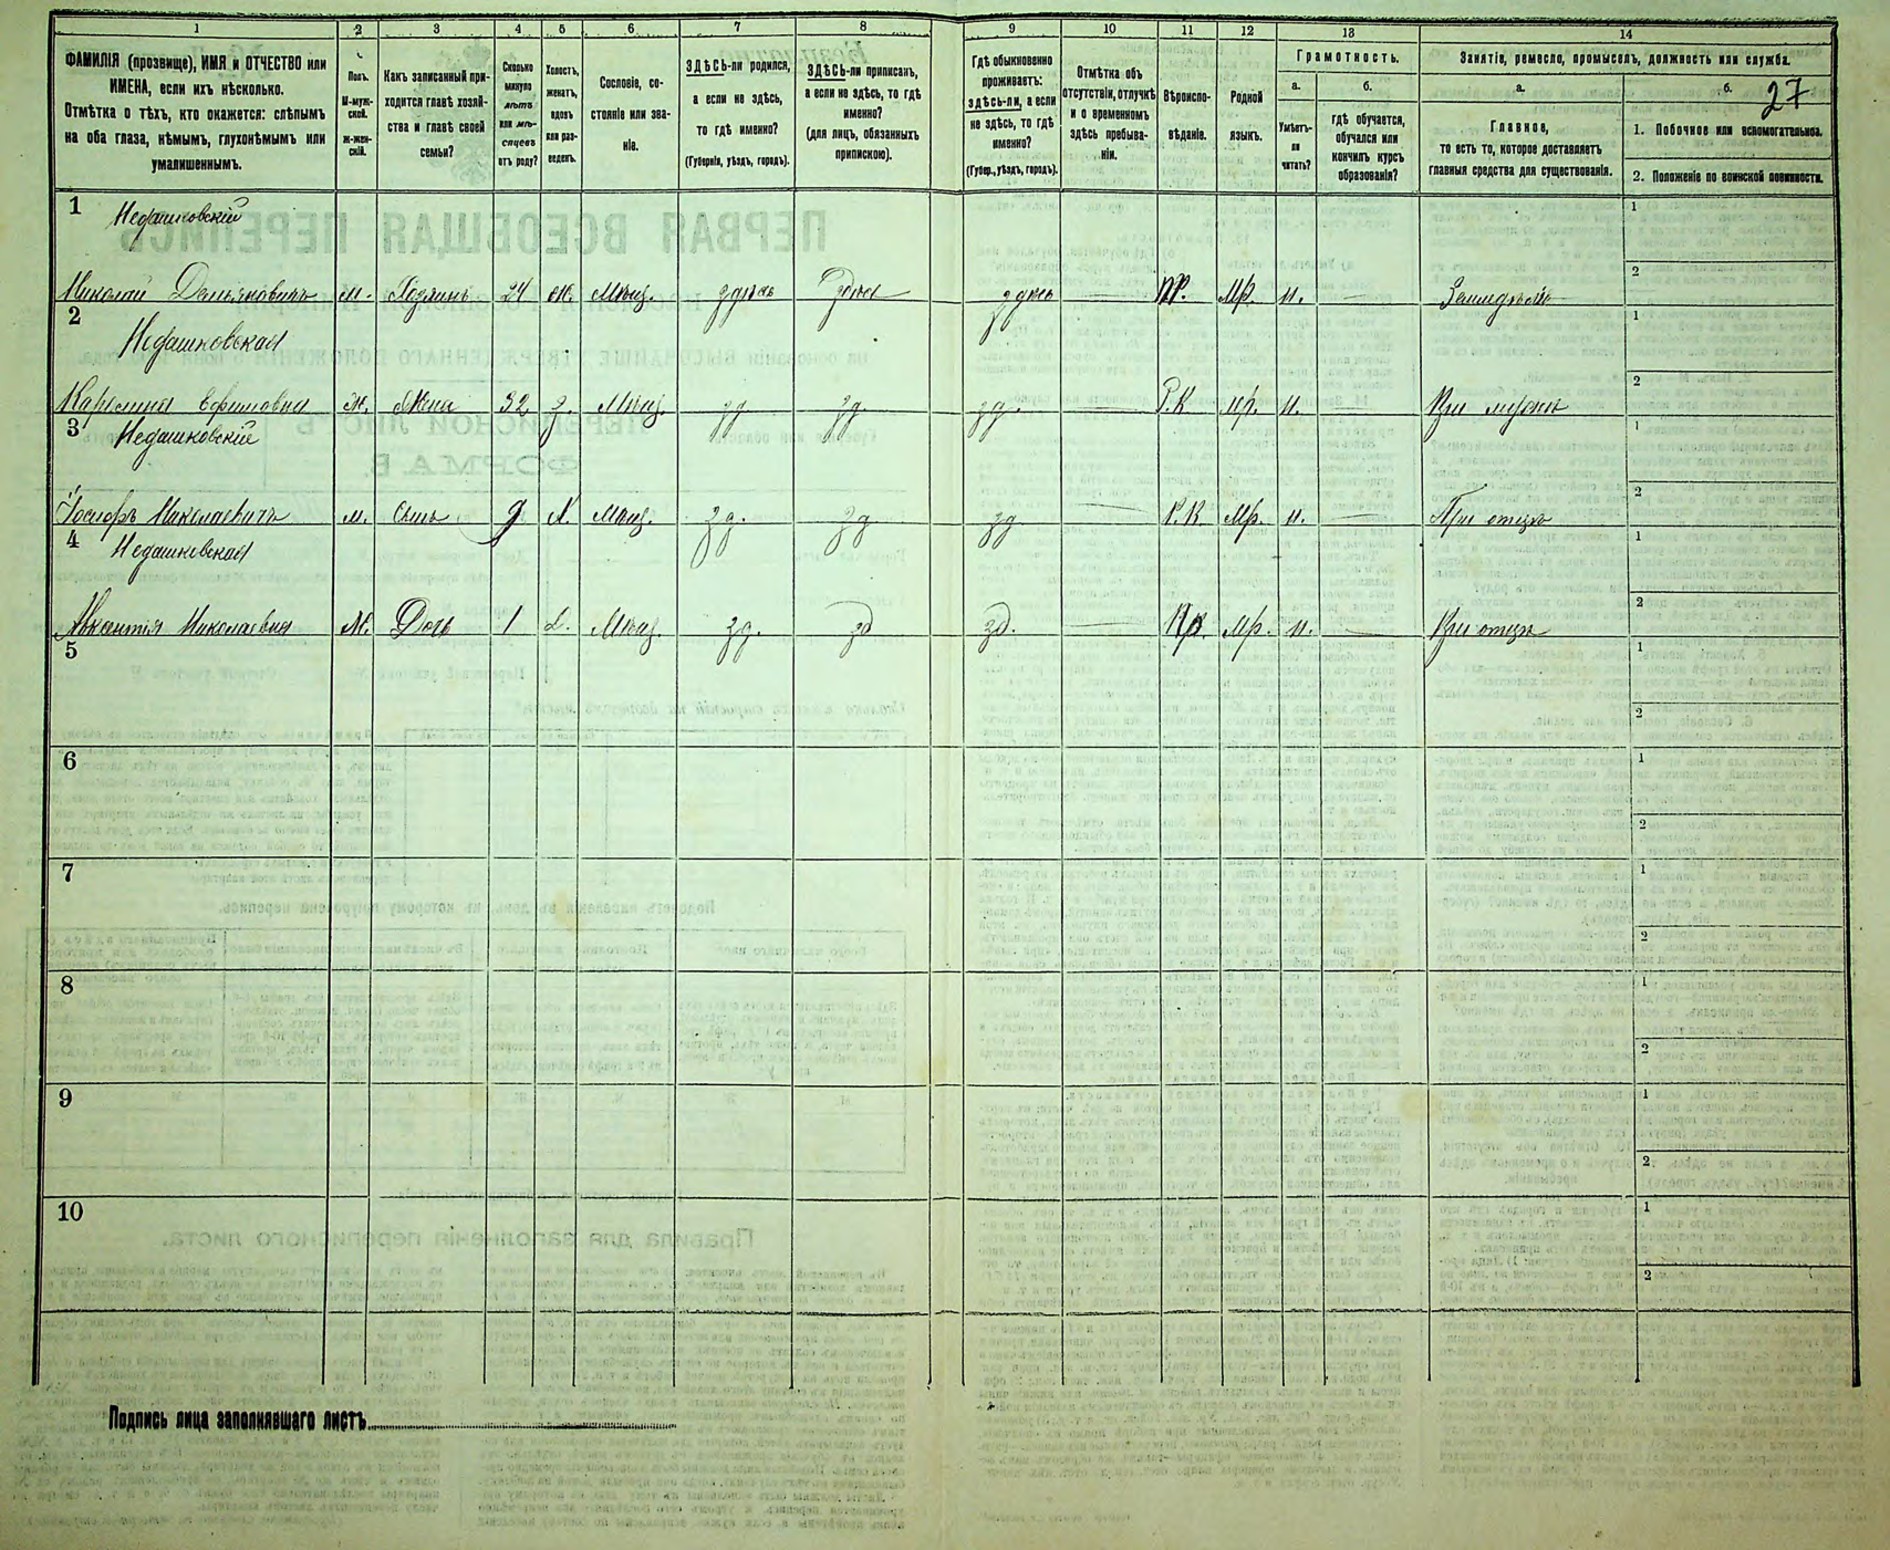 1 2 3 4 5 6 7 8 9 10 11 12 13 14
27
ФАМИЛІЯ (прозвище), ИМЯ и ОТЧЕСТВО или
ИМЕНА, если ихъ нѣсколько.
Отмѣтка о тѣхъ, кто окажется: слѣпымъ
на оба глаза, нѣмымъ, глухонѣмымъ или
умалишеннымъ.
Полъ.
М-муж-
ской.
Ж-жен-
скій.
Какъ записанный при-
ходится главѣ хозяй-
ства и главѣ своей
семьи?
Сколько
минуло
лѣтъ
или мѣ-
сяцевъ
отъ роду?
Холостъ,
женатъ,
вдовъ
или раз-
веденъ.
Сословіе, со-
стояніе или зва-
ніе.
ЗДѢСЬ-ли родился,
а если не здѣсь,
то гдѣ именно?
(Губернія, уѣздъ, городъ).
ЗДѢСЬ-ли приписанъ,
а если не здѣсь, то гдѣ
именно?
(для лицъ, обязанныхъ
припискою).
Гдѣ обыкновенно
проживаетъ:
здѣсь-ли, а если
не здѣсь, то гдѣ
именно?
(Губер., уѣздъ, городъ).
Отмѣтка объ
отсутствіи, отлучкѣ
и о временномъ
здѣсь пребыва-
ніи.
Вѣроиспо-
вѣданіе.
Родной
языкъ.
Грамотность.
а.
Умѣетъ-
ли
читать?
б.
гдѣ обучается,
обучался или
кончилъ курсъ
образованія?
Занятіе, ремесло, промыселъ, должность или служба.
а.
Главное,
то есть то, которое доставляетъ
главныя средства для существованія.
б.
1. Побочное или вспомогательное.
2. Положеніе по воинской повинности.
1 Недашковскій 1
2
Николай Демьяновичъ м. Хозяинъ 24 ж. Мѣщ. здѣсь здѣсь здѣсь — Пр. Мр. н. —
2 Недашковская 1
2
Ефимовна ж. Жена 32 з. Мѣщ. зд. зд. зд. — Р.К. Мр. н. — При мужѣ
3 Недашковскій 1
2
Іосифъ Николаевичъ м. Сынъ 9 х. Мѣщ. зд. зд зд — Р.К Мр. н. — При отцѣ
4 Недашковская 1
2
Николаевна ж. Дочь 1 д. Мѣщ. зд. зд зд. — Пр. Мр. н. — При отцѣ
5 1
2
6 1
2
7 1
2
8 1
2
9 1
2
10 1
2
Подпись лица заполнявшаго листъ